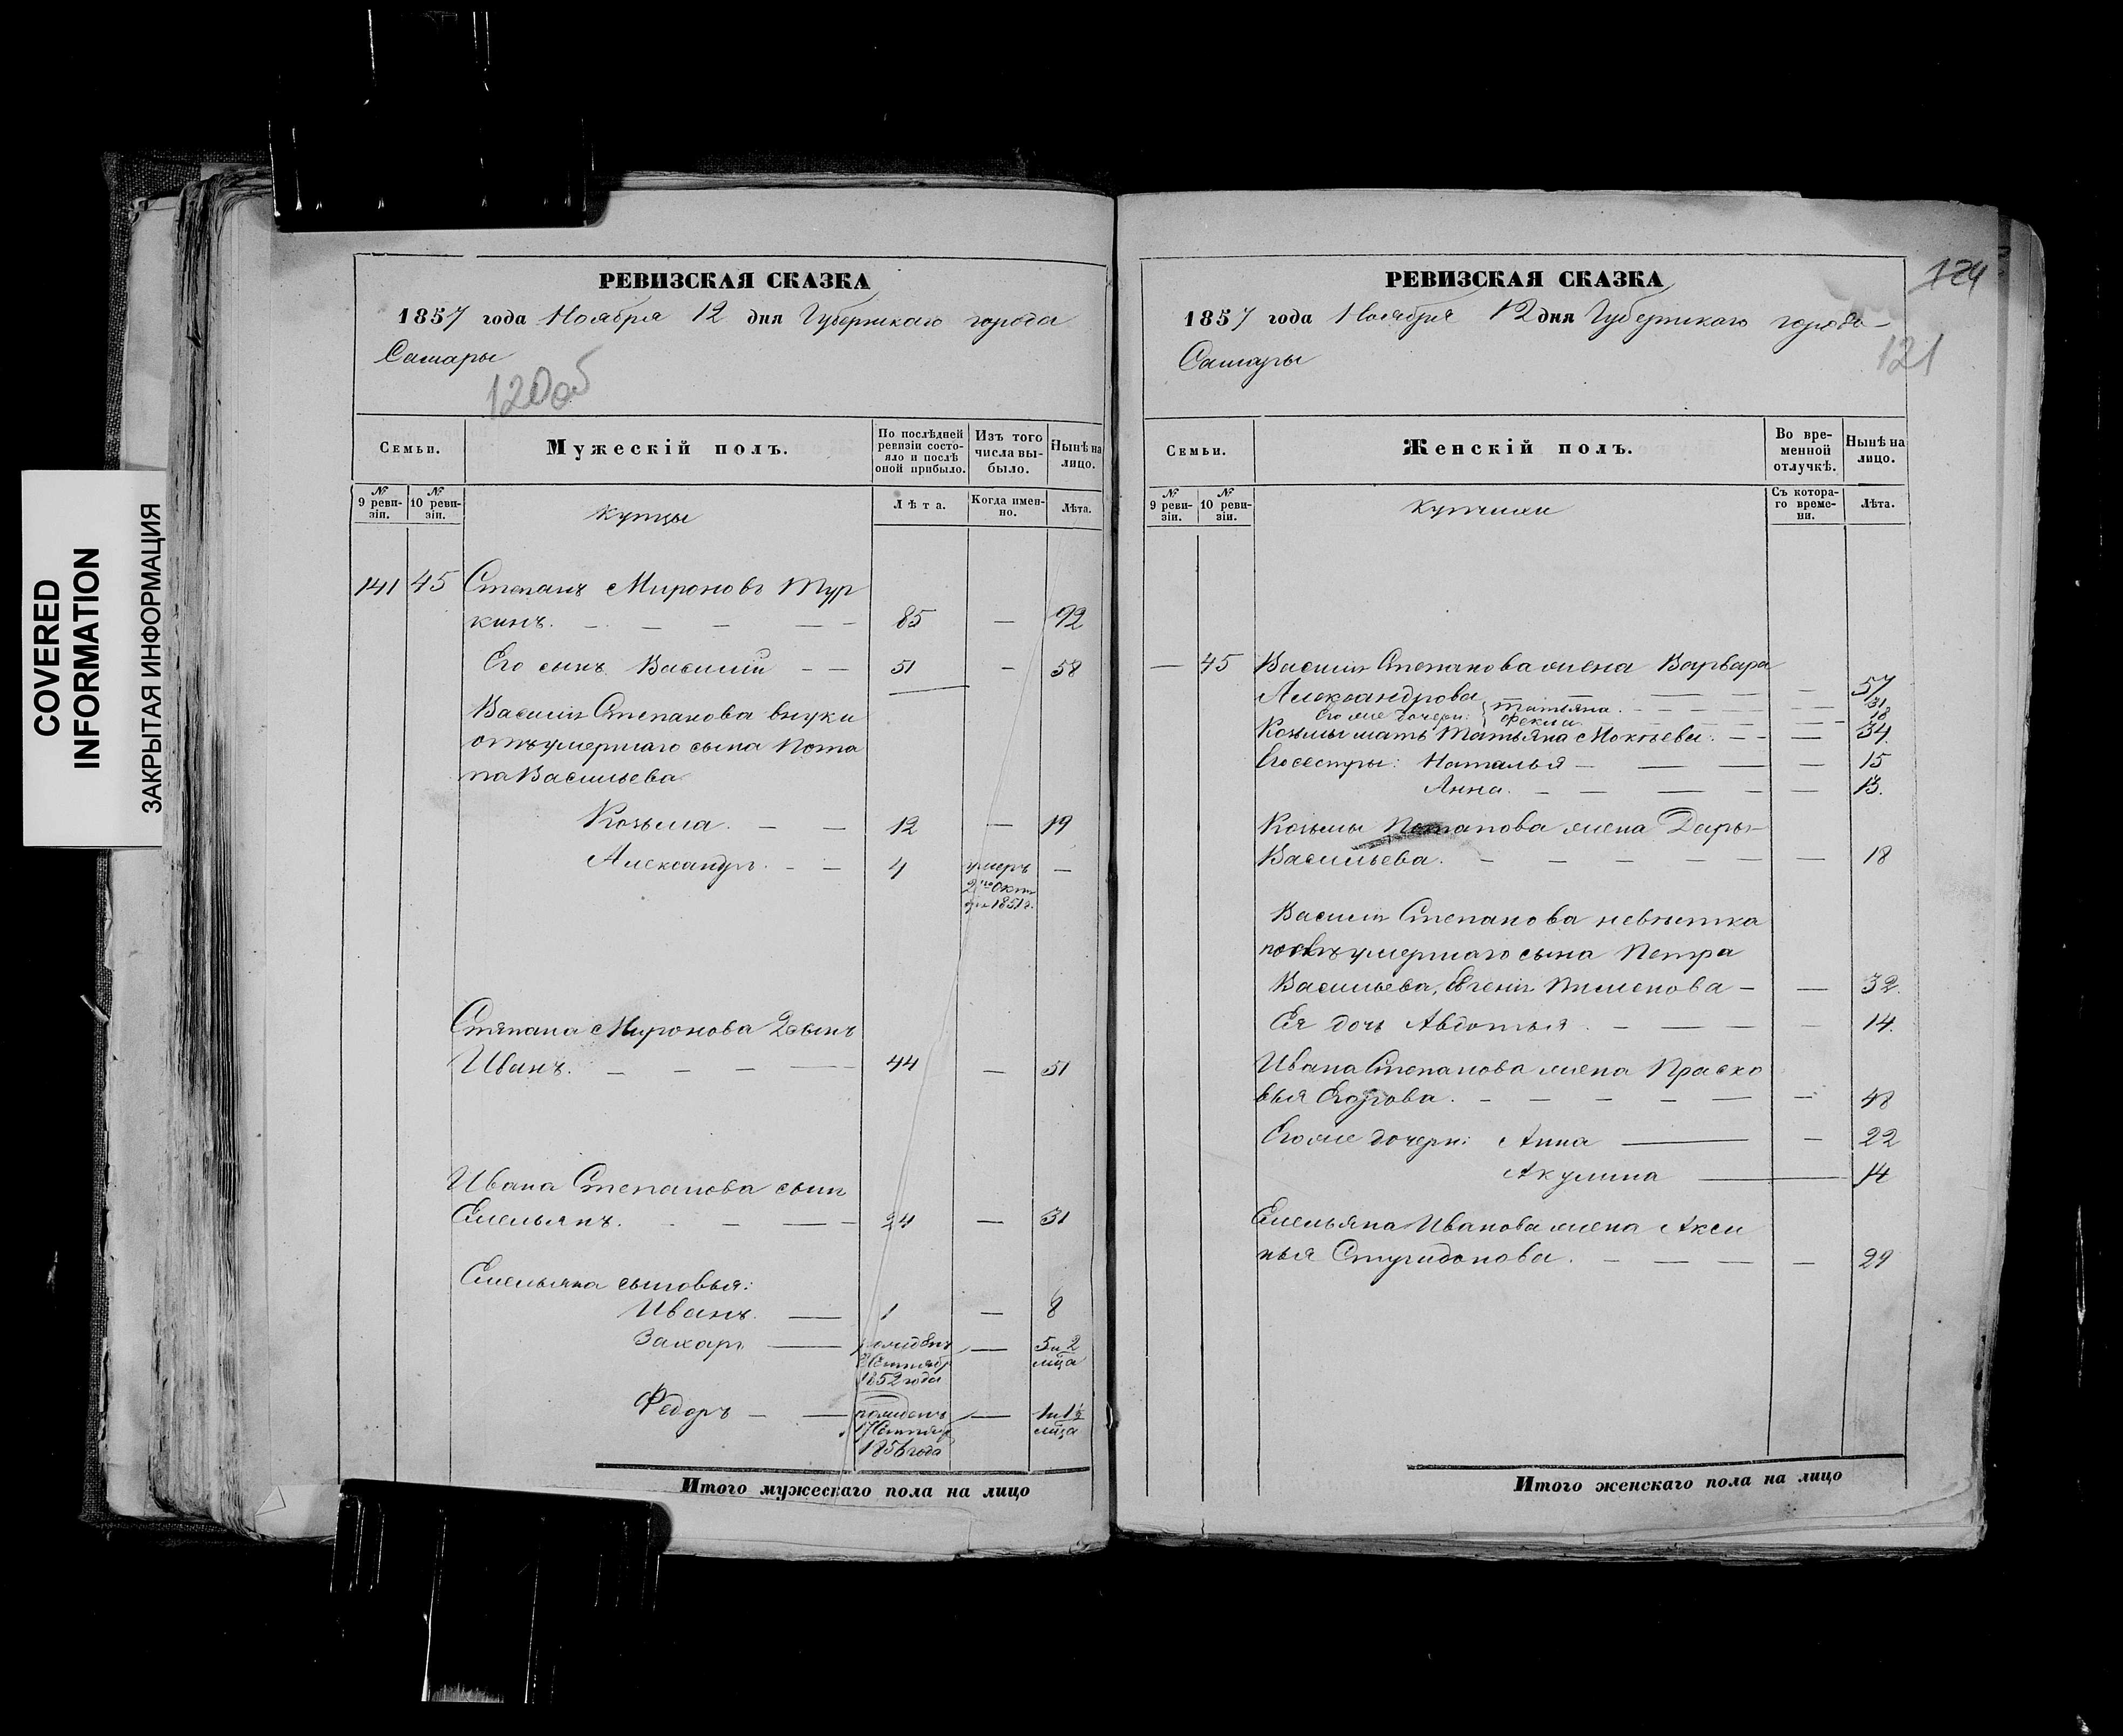 COVERED
INFORMATION
ЗАКРЫТАЯ ИНФОРМАЦИЯ
РЕВИЗСКАЯ СКАЗКА
1857 года Ноября 12 дня Губернскаго города
Самары
120об
Семьи. Мужескій полъ. По послѣдней ревизіи состояло и послѣ оной прибыло. Изъ того числа выбыло. Нынѣ на лицо.
№ 9 ревизіи. № 10 ревизіи. Купцы Лѣта. Когда именно. Лѣта.
141 45 Степанъ Мироновъ Тур
кинъ. — 85 — 92
Его сынъ Василий — 51 — 58
Василія Степанова внуки
отъ умершаго сына Пота
па Васильева
Козьма. — 12 — 19
Александръ. — 4 умеръ —
1851 г.
Степана Миронова 2 сынъ
Иванъ. — 44 — 51
Ивана Степанова сынъ
Емельянъ. — 24 — 31
Емельяна сыновья:
Иванъ. — 1 — 8
Захаръ — рожденъ — 5 и 2
1852 года
Федоръ — рожденъ — 1 и 1
1856 года
Итого мужескаго пола на лицо
РЕВИЗСКАЯ СКАЗКА
1857 года Ноября 12 дня Губернскаго города
Самары
124
121
Семьи. Женскій полъ. Во временной отлучкѣ. Нынѣ на лицо.
№ 9 ревизіи. № 10 ревизіи. Купчихи Съ котораго времени. Лѣта.
— 45 Василія Степанова жена Варвара
Александрова — — 57
Его же дочери: Татьяна. — — 31
Фекла. — — 18
Козьмы мать Татьяна Мокѣева. — — 34
Его сестры: Наталья — — 15
Анна. — — 13.
Козьмы Потапова жена Дарья
Васильева. — — 18
Василія Степанова невѣстка
послѣ умершаго сына Петра
Васильева, Евгенія Пименова — — 32.
Ея дочь Авдотья. — — 14.
Ивана Степанова жена Праско
вья Егорова. — — 48
Его же дочери: Анна — — 22
Акулина — 14
Емельяна Иванова жена Акси
нья Спиридонова. — — 29
Итого женскаго пола на лицо